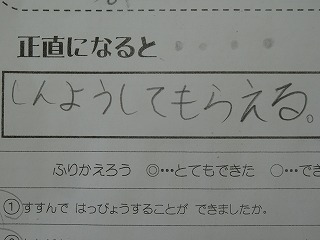 正直になると
しんようしてもらえる。
ふりかえろう ◎…とてもできた ○…でき
①すすんで はっぴょうすることが できましたか。